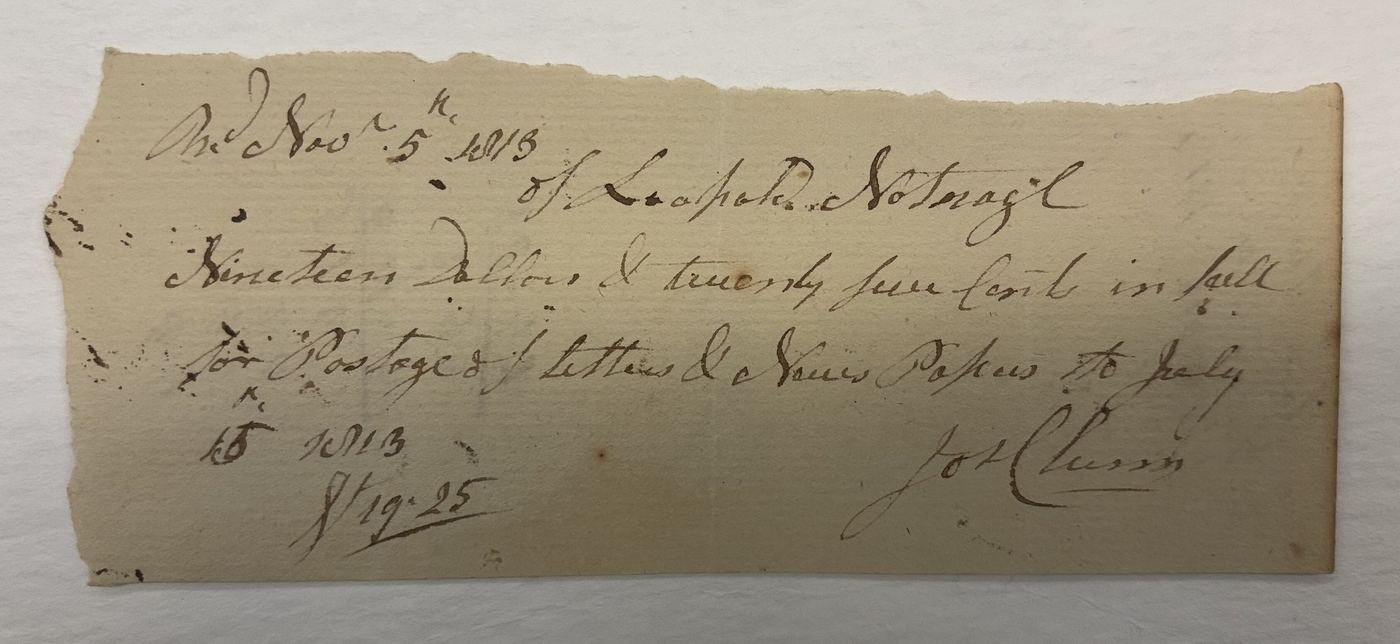 Recd Novr. 5th. 1813
of Leopold Notnagil
Nineteen Dollars & twenty five Cents in full
for Postage of Letters & News Papers to July
15th. 1813
$19.25
Jos Clunn